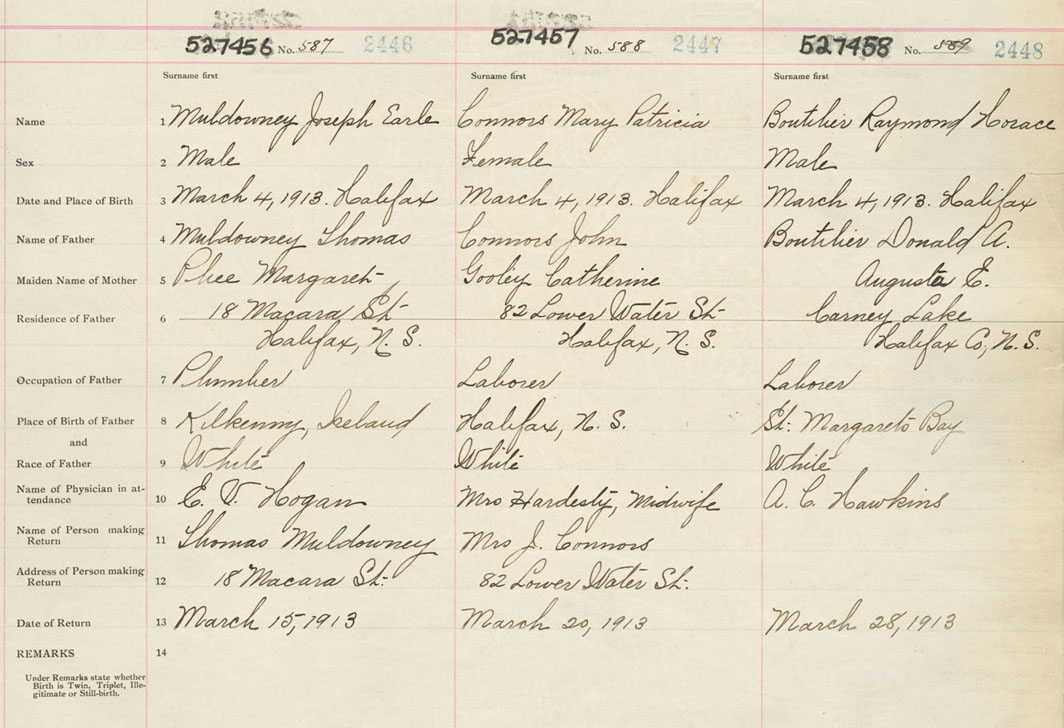 527456 No. 587 2446 527457 No. 588 2447 527458 No. 589 2448
Surname first Surname first Surname first
Name 1 Muldowney Joseph Earle Connors Mary Patricia Boutilier Raymond Horace
Sex 2 Male Female Male
Date and Place of Birth 3 March 4, 1913. Halifax March 4, 1913. Halifax March 4, 1913. Halifax
Name of Father 4 Muldowney Thomas Connors John Boutilier Donald A.
Maiden Name of Mother 5 Phee Margaret Gooley Catherine Augusta E.
Residence of Father 6 18 Macara St. 82 Lower Water St. Carney Lake
Halifax, N. S. Halifax, N. S. Halifax Co, N. S.
Occupation of Father 7 Plumber Laborer Laborer
Place of Birth of Father 8 Kilkenny, Ireland Halifax, N. S. St. Margarets Bay
and
Race of Father 9 White White White
Name of Physician in at-
tendance 10 E. V. Hogan Mrs Hardesty, Midwife A. C. Hawkins
Name of Person making
Return 11 Thomas Muldowney Mrs J. Connors
Address of Person making
Return 12 18 Macara St. 82 Lower Water St.
Date of Return 13 March 15, 1913 March 20, 1913 March 28, 1913
REMARKS 14
Under Remarks state whether
Birth is Twin, Triplet, Ille-
gitimate or Still-birth.